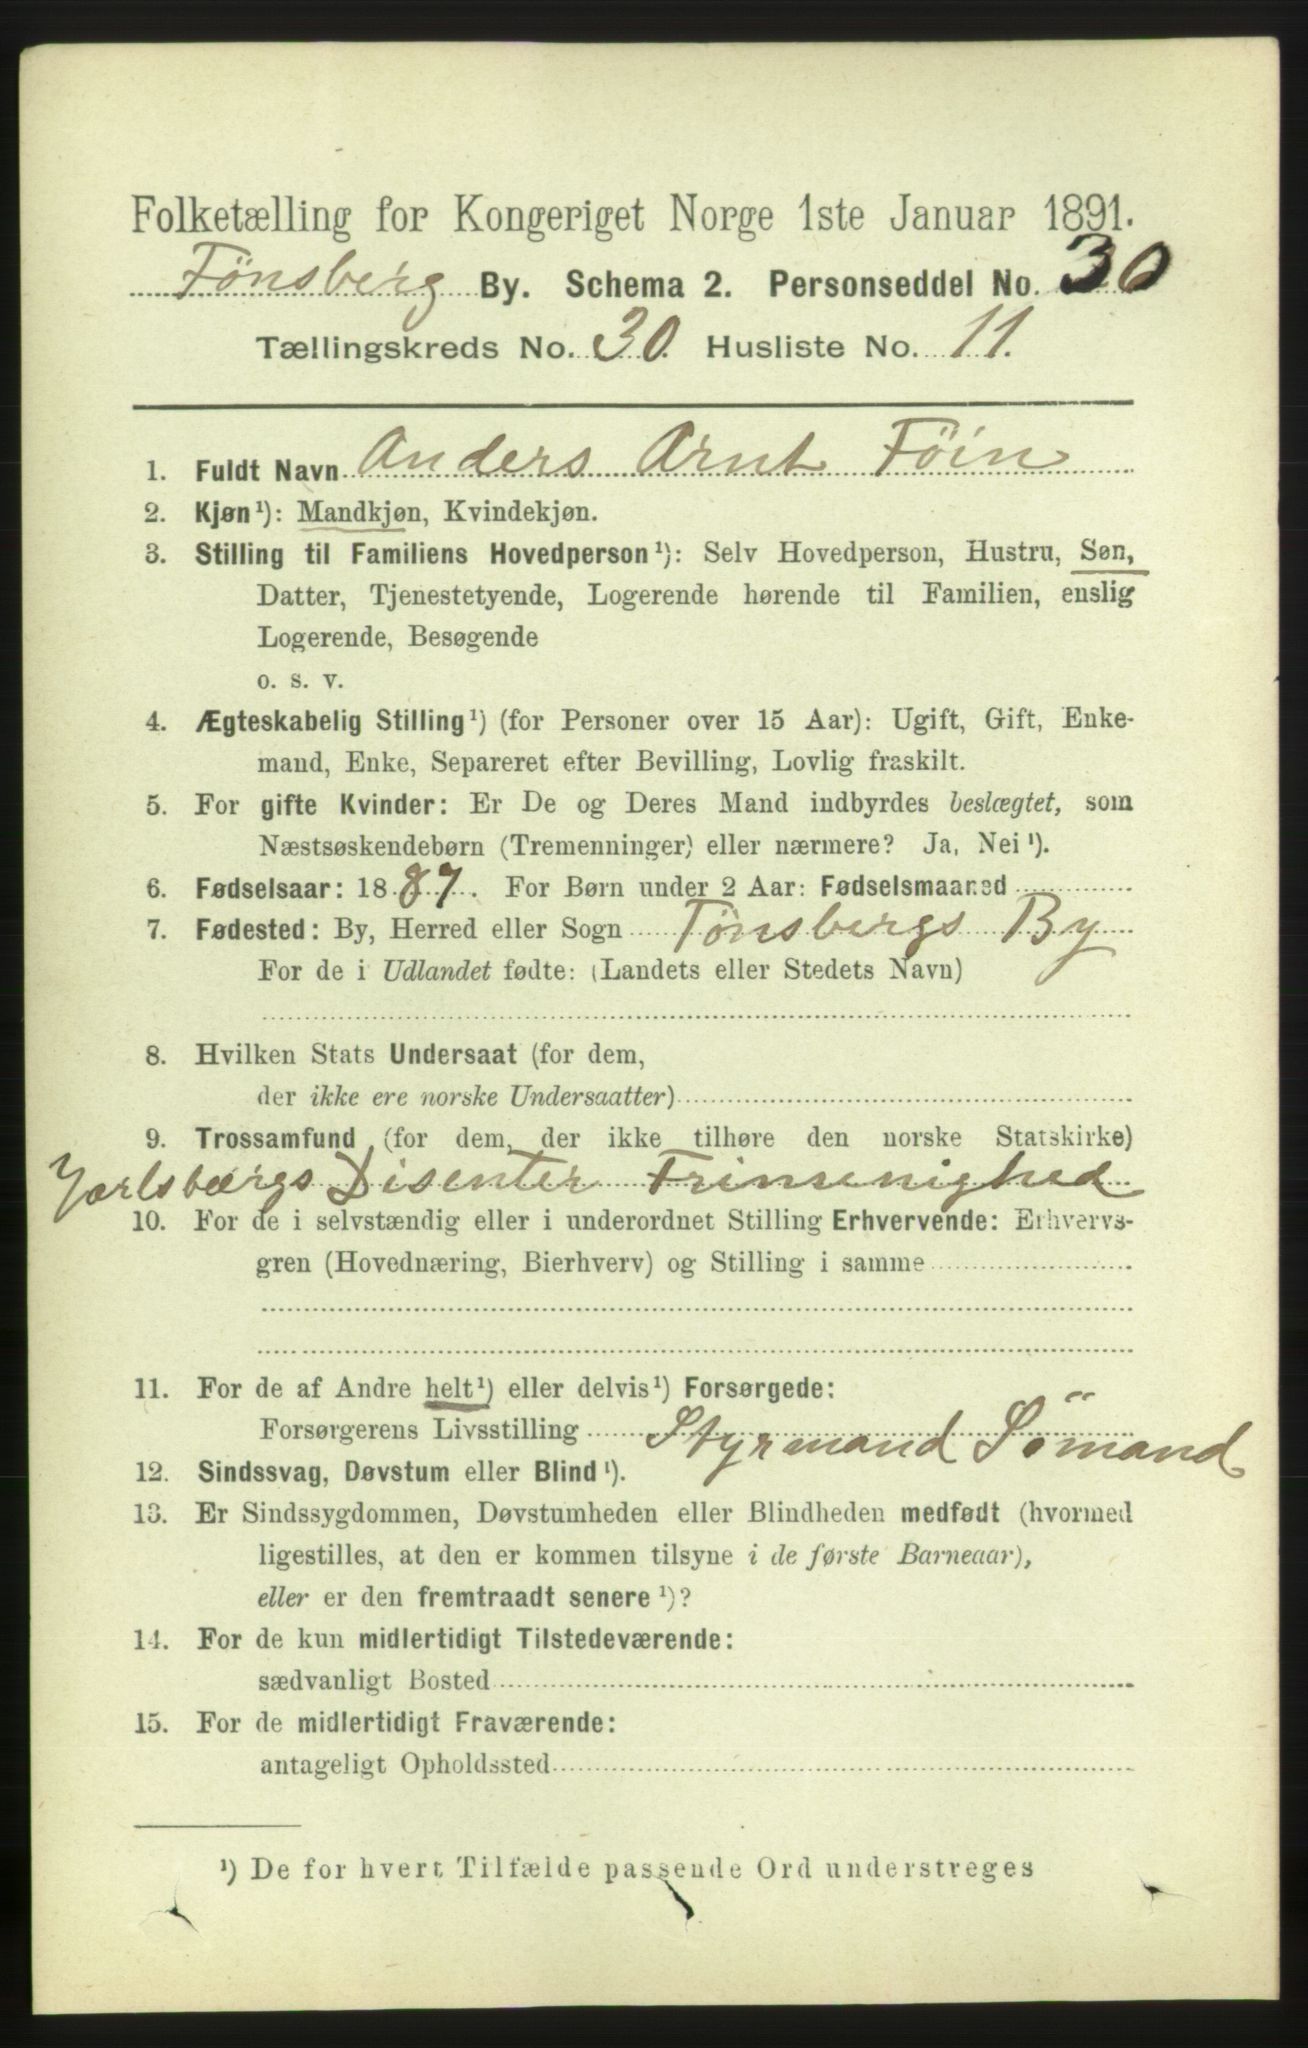 Folketælling for Kongeriget Norge 1ste Januar 1891.
Tønsberg By. Schema 2. Personseddel No. 30
Tællingskreds No. 30. Husliste No. 11.
1. Fuldt Navn Anders Arnt Föin
2. Kjøn ¹): Mandkjøn, Kvindekjøn.
3. Stilling til Familiens Hovedperson ¹): Selv Hovedperson, Hustru, Søn,
Datter, Tjenestetyende, Logerende hørende til Familien, enslig
Logerende, Besøgende
o. s. v.
4. Ægteskabelig Stilling ¹) (for Personer over 15 Aar): Ugift, Gift, Enke-
mand, Enke, Separeret efter Bevilling, Lovlig fraskilt.
5. For gifte Kvinder: Er De og Deres Mand indbyrdes beslægtet, som
Næstsøskendebørn (Tremenninger) eller nærmere? Ja, Nei ¹).
6. Fødselsaar: 1887. For Børn under 2 Aar: Fødselsmaaned
7. Fødested: By, Herred eller Sogn Tönsbergs By
For de i Udlandet fødte: (Landets eller Stedets Navn)
8. Hvilken Stats Undersaat (for dem,
der ikke ere norske Undersaatter)
9. Trossamfund (for dem, der ikke tilhøre den norske Statskirke)
Jarlsbærgs Disenter Frimenighed
10. For de i selvstændig eller i underordnet Stilling Erhvervende: Erhvervs-
gren (Hovednæring, Bierhverv) og Stilling i samme
11. For de af Andre helt ¹) eller delvis ¹) Forsørgede:
Forsørgerens Livsstilling Styrmand Sömand
12. Sindssvag, Døvstum eller Blind ¹).
13. Er Sindssygdommen, Døvstumheden eller Blindheden medfødt (hvormed
ligestilles, at den er kommen tilsyne i de første Barneaar),
eller er den fremtraadt senere ¹)?
14. For de kun midlertidigt Tilstedeværende:
sædvanligt Bosted
15. For de midlertidigt Fraværende:
antageligt Opholdssted
¹) De for hvert Tilfælde passende Ord understreges